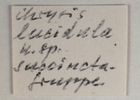 Chrysis
lucidula
n. sp.
succincta-
Gruppe